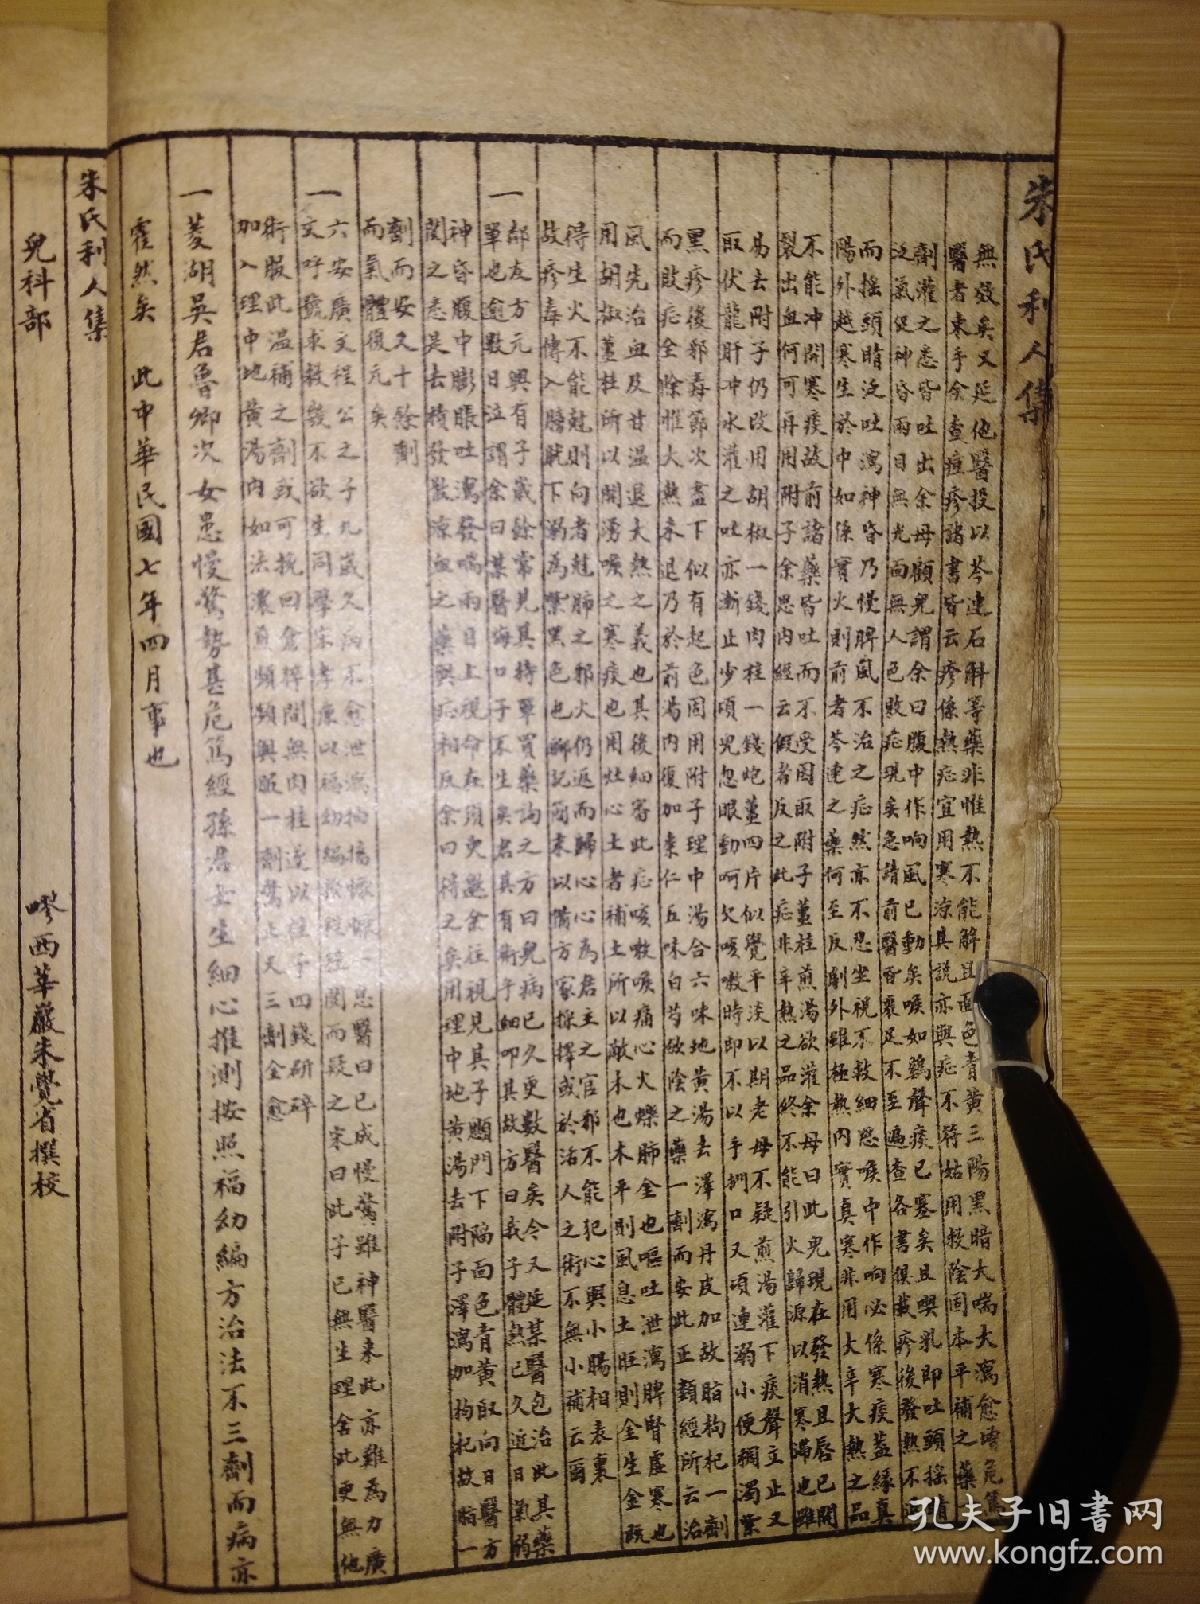 朱氏利人集
無發矣又延他醫投以芩連石斛等藥非惟熱不能解且面色青黃三陽黑暗大喘大瀉愈增危篤
醫者束手余查痘疹諸書皆云疹係熱症宜用寒涼其說亦與症不符姑用救陰固本平補之藥
劑灌之悉皆吐出余母顧兒謂余曰腹中作响風已動矣喉如鷄聲痰已塞矣且喫乳即吐頭搖
泛氣促神昏兩目無光面無人色敗症現矣急請前醫皆裹足不至遍查各書俱載疹後發熱不
而搖頭睛泛吐瀉神昏乃慢脾風不治之症然亦不忍坐視不救細思喉中作响必係寒痰蓋緣真
陽外越寒生於中如係實火則前者芩連之藥何至反劇外雖極熱內實真寒非用大辛大熱之品
不能冲開寒痰故前諸藥皆吐而不受因取附子薑桂煎湯欲灌余母曰此兒現在發熱且唇已開
裂出血何可再用附子余思內經云假者反之此症非辛熱之品終不能引火歸源以消寒滿也雖
易去附子仍改用胡椒一錢肉桂一錢炮薑四片似覺平淡以期老母不疑煎湯灌下痰聲立止又
取伏龍肝冲水灌之吐亦漸止少頃兒忽眼動呵欠咳嗽時即不以手捫口又頃連溺小便稠濁紫
黑疹後邪毒節次盡下似有起色因用附子理中湯合六味地黃湯去澤瀉丹皮加故脂枸杞一劑
而敗症全除惟大熱未退乃於前湯內復加棗仁五味白芍歛陰之藥一劑而安此正類經所云治
風先治血及甘溫退大熱之義也其後細審此症咳嗽喉痛心火爍肺金也嘔吐泄瀉脾腎虛寒也
用胡椒薑桂所以開湧喉之寒痰也用灶心土者補土所以敵木也木平則風息土旺則金生金既
得生火不能尅則向者尅肺之邪火仍返而歸心心為君主之官邪不能犯心與小腸相表裏
故疹毒傳入膀胱下溺為紫黑色也聊記簡末以備方家採擇或於活人之術不無小補云爾
一鄰友方元興有子歲餘常見其持單買藥詢之方曰兒病已久更數醫矣今又延某醫包治此其藥
單也逾數日泣謂余曰某醫悔口子不生矣君其有術乎細叩其故方曰我子體熱已久近日氣弱
神昏腹中膨脹吐瀉發喘兩目上視命在須臾邀余往視見其子顖門下陷面色青黃取向日醫方
閱之悉是去積發散涼血之藥與症相反余曰得之矣用理中地黃湯去附子澤瀉加枸杞故脂一
劑而安久十餘劑
而氣體復元矣
一六安廣文程公之子九歲久病不愈泄瀉抽搐懨懨一息醫曰已成慢驚雖神醫來此亦難為力廣
文呼號求救幾不欲生同學宋孝廉以福幼編救往程閱而疑之宋曰此子已無生理舍此更無他
術服此溫補之劑或可挽回倉猝間無肉桂遂以桂子四錢研碎
加入理中地黃湯內如法濃煎頻頻與服一劑驚止又三劑全愈
一菱湖吳君魯卿次女患慢驚勢甚危篤經孫君去生細心推測按照福幼編方治法不三劑而病亦
霍然矣 此中華民國七年四月事也
朱氏利人集
兒科部
嘐西華嚴朱覺省撰校
孔夫子旧书网
www.kongfz.com